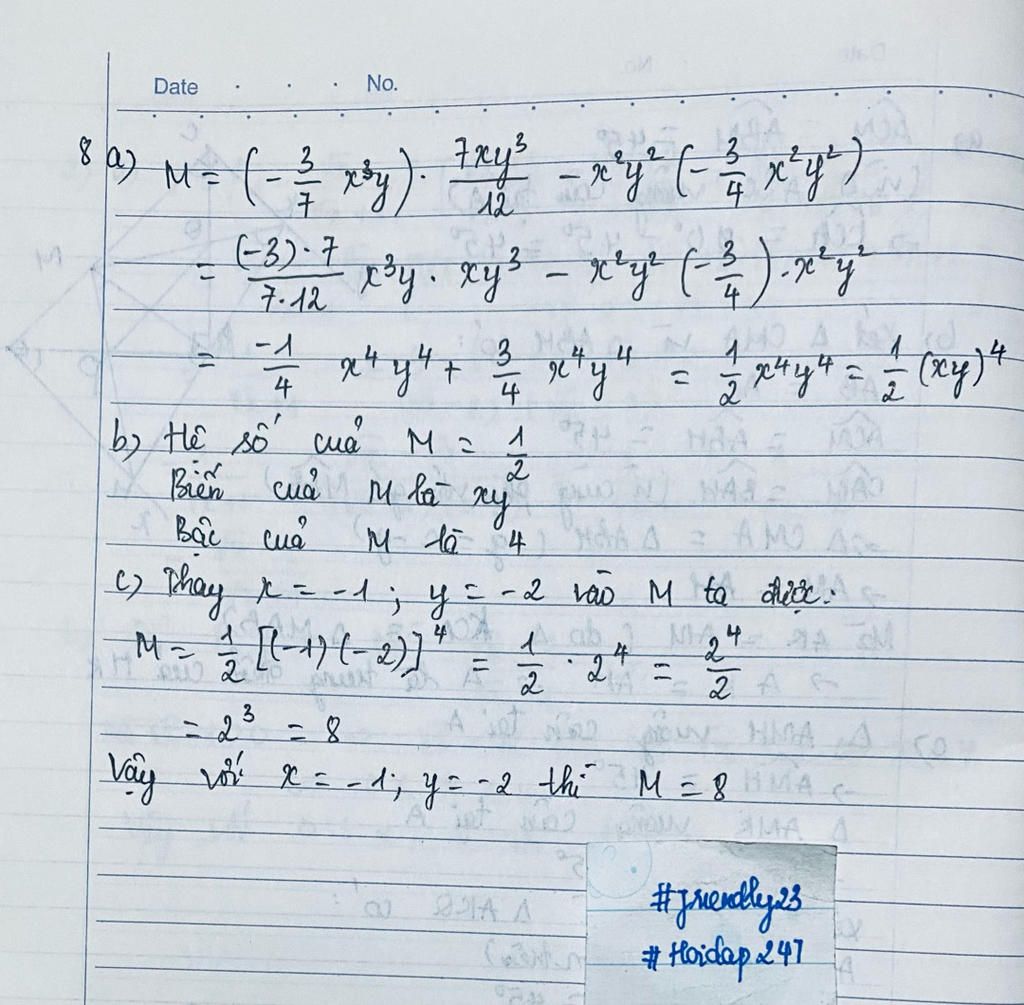 Date . . . No.
8 a) M = (-3/7 x³y) · 7xy³/12 - x²y² (-3/4 x²y²)
= (-3)·7/7·12 x³y · xy³ - x²y² (-3/4) · x²y²
= -1/4 x⁴y⁴ + 3/4 x⁴y⁴ = 1/2 x⁴y⁴ = 1/2 (xy)⁴
b) Hệ số của M = 1/2
Biến của M là xy
Bậc của M là 4
c) Thay x = -1; y = -2 vào M ta được:
M = 1/2 [(-1)(-2)]⁴ = 1/2 · 2⁴ = 2⁴/2
= 2³ = 8
Vậy với x = -1; y = -2 thì M = 8
#friendly23
#Hoidap247